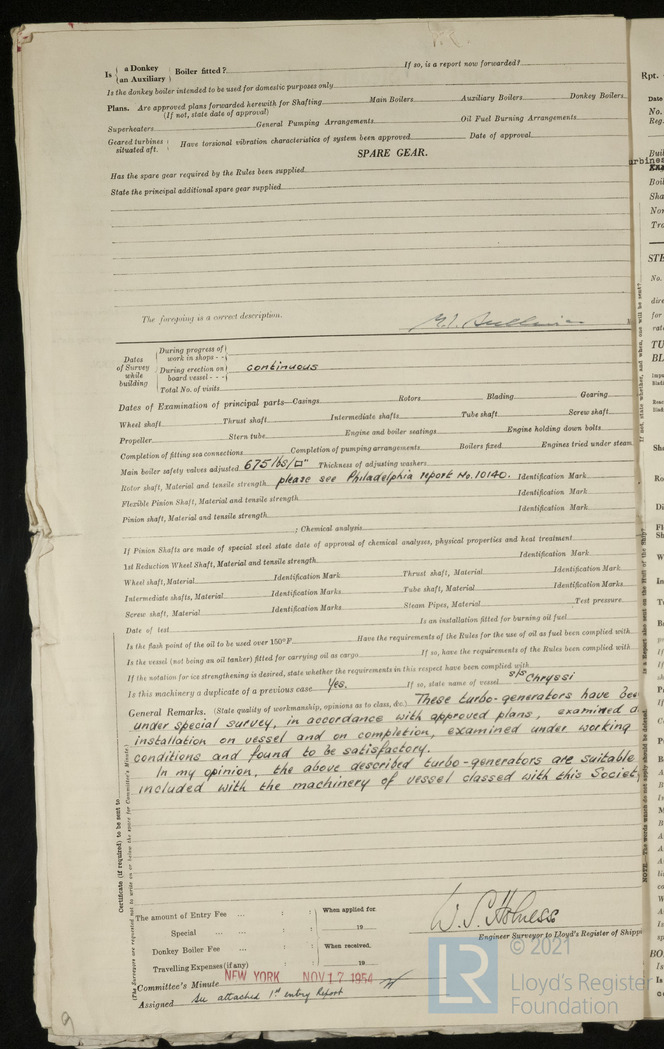 Is { a Donkey / an Auxiliary } Boiler fitted? If so, is a report now forwarded?
Is the donkey boiler intended to be used for domestic purposes only
Plans. Are approved plans forwarded herewith for Shafting Main Boilers Auxiliary Boilers Donkey Boilers
(If not, state date of approval)
Superheaters General Pumping Arrangements Oil Fuel Burning Arrangements
Geared turbines situated aft. } Have torsional vibration characteristics of system been approved Date of approval
SPARE GEAR.
Has the spare gear required by the Rules been supplied
State the principal additional spare gear supplied
The foregoing is a correct description.
Dates of Survey while building
During progress of work in shops - -
During erection on board vessel - - - continuous
Total No. of visits
Dates of Examination of principal parts—Casings Rotors Blading Gearing
Wheel shaft Thrust shaft Intermediate shafts Tube shaft Screw shaft
Propeller Stern tube Engine and boiler seatings Engine holding down bolts
Completion of fitting sea connections Completion of pumping arrangements Boilers fixed Engines tried under steam
Main boiler safety valves adjusted 675 lbs/□" Thickness of adjusting washers
Rotor shaft, Material and tensile strength please see Philadelphia report No. 10140. Identification Mark
Flexible Pinion Shaft, Material and tensile strength Identification Mark
Pinion shaft, Material and tensile strength Identification Mark
; Chemical analysis
If Pinion Shafts are made of special steel state date of approval of chemical analyses, physical properties and heat treatment
1st Reduction Wheel Shaft, Material and tensile strength Identification Mark
Wheel shaft, Material Identification Mark Thrust shaft, Material Identification Mark
Intermediate shafts, Material Identification Marks Tube shaft, Material Identification Marks
Screw shaft, Material Identification Marks Steam Pipes, Material Test pressure
Date of test Is an installation fitted for burning oil fuel
Is the flash point of the oil to be used over 150°F Have the requirements of the Rules for the use of oil as fuel been complied with
Is the vessel (not being an oil tanker) fitted for carrying oil as cargo If so, have the requirements of the Rules been complied with
If the notation for ice strengthening is desired, state whether the requirements in this respect have been complied with
Is this machinery a duplicate of a previous case Yes. If so, state name of vessel s/s Chryssi
General Remarks. (State quality of workmanship, opinions as to class, &c.) These turbo-generators have bee
under special survey, in accordance with approved plans, examined a
installation on vessel and on completion, examined under working
conditions and found to be satisfactory.
In my opinion, the above described turbo-generators are suitable
included with the machinery of vessel classed with this Society
Certificate (if required) to be sent to
(The Surveyors are requested not to write on or below the space for Committee's Minute)
The amount of Entry Fee ... : : When applied for
Special ... : : 19
Donkey Boiler Fee ... : : When received,
Travelling Expenses (if any) : : 19
W. S. Holness
Engineer Surveyor to Lloyd's Register of Shipp
Committee's Minute NEW YORK NOV 17 1954
Assigned See attached 1st entry Report
9
© 2021
LR
Lloyd's Register
Foundation
Rpt.
Date
No.
Reg.
urbines